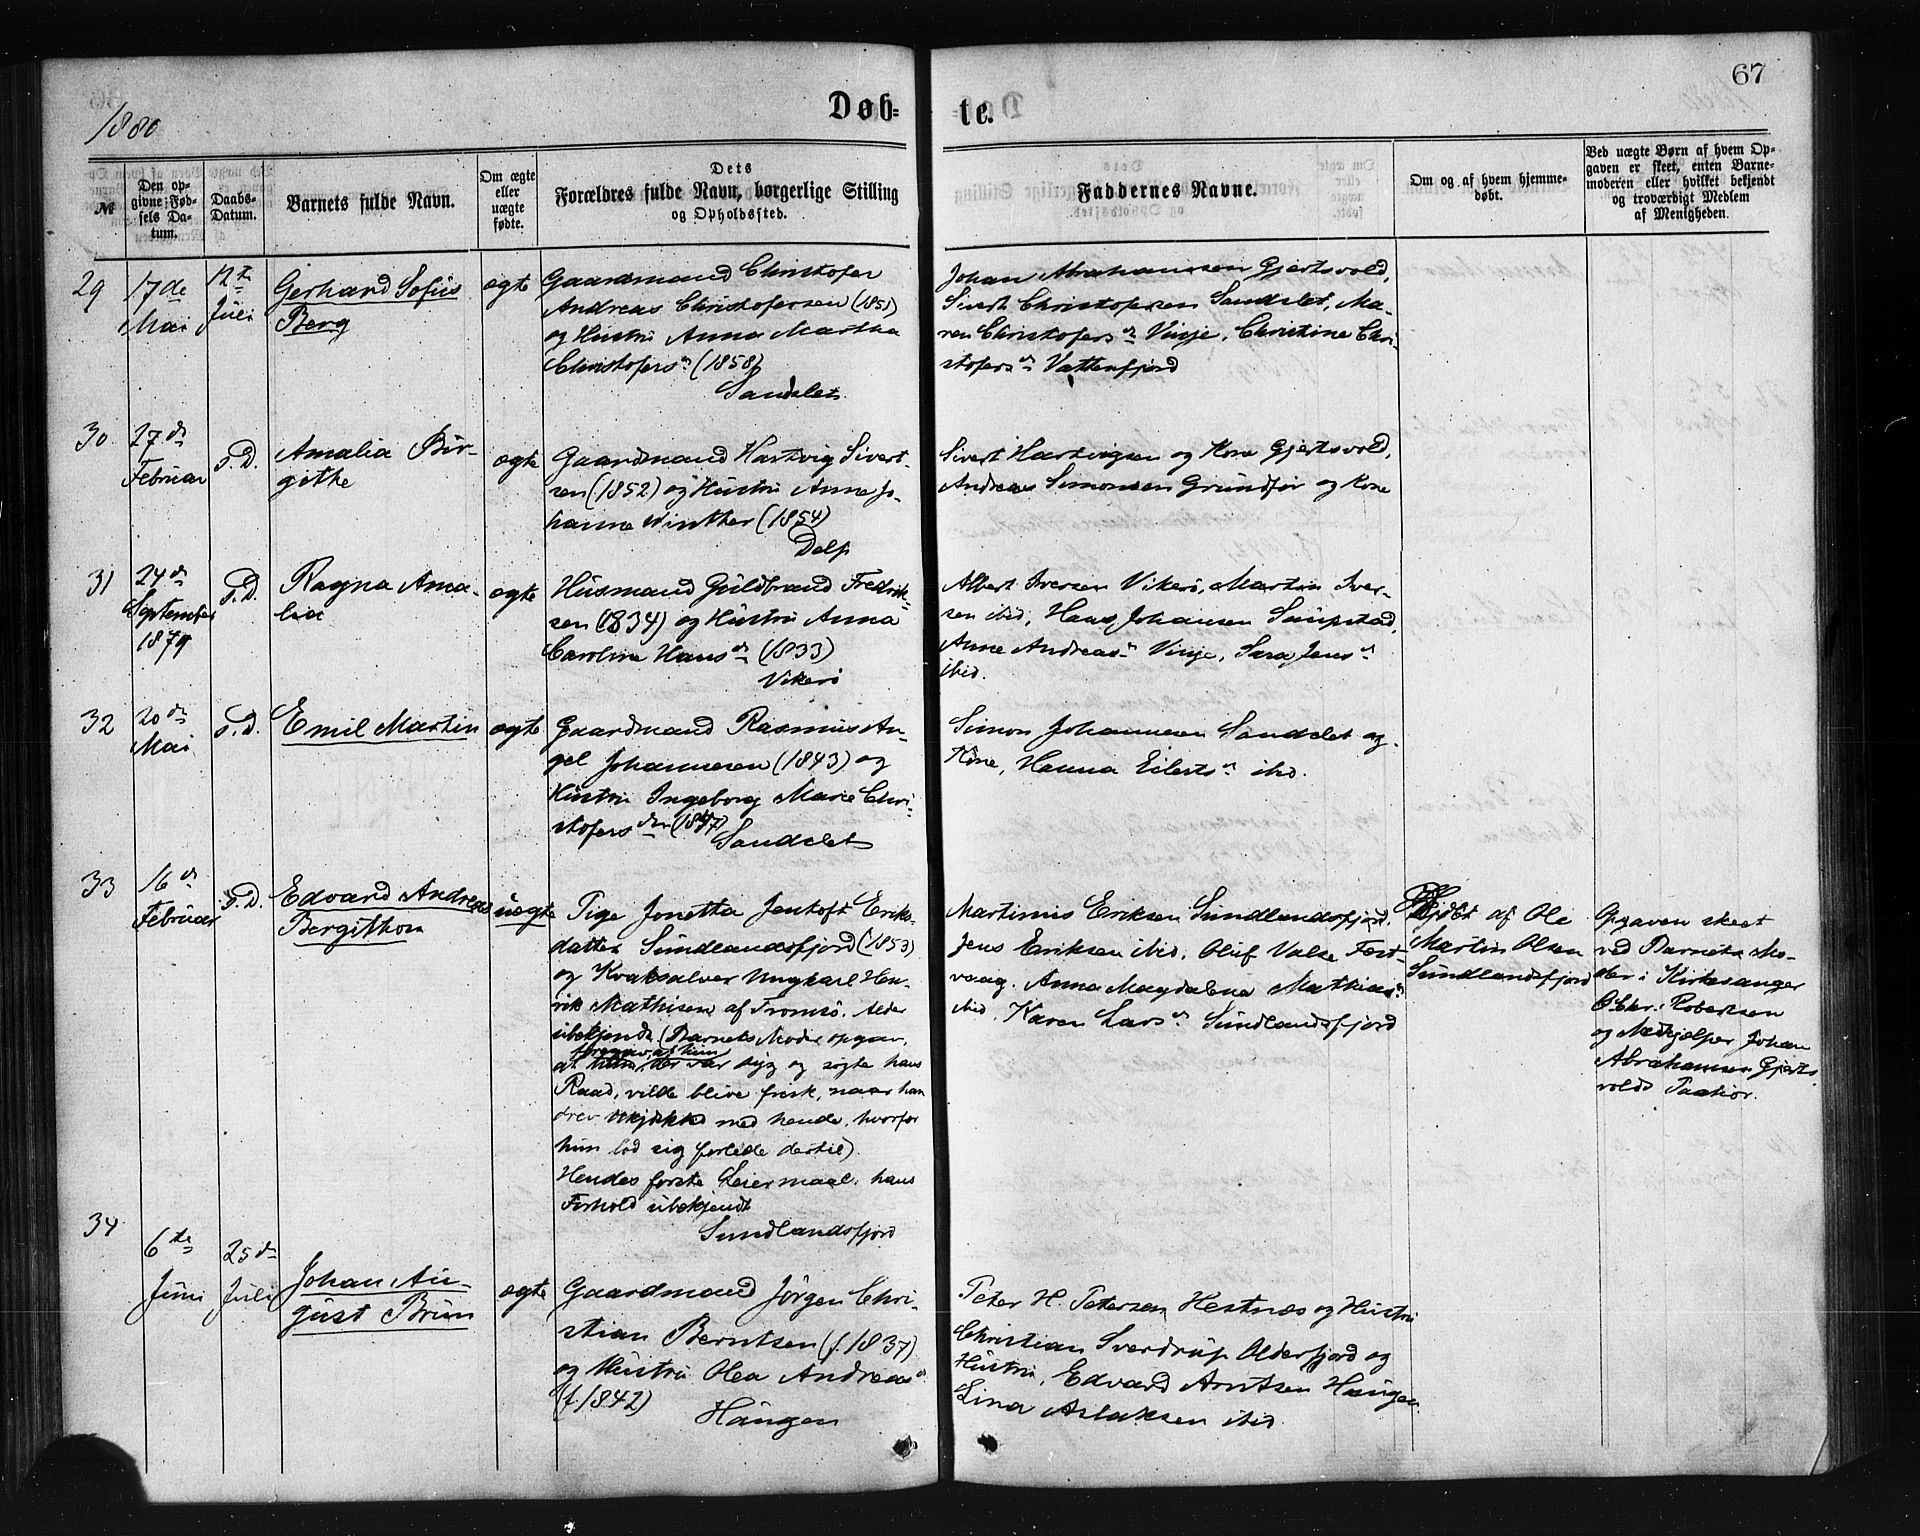 67
1880
Døb=
te.
№
Den op-
givne Fød-
sels Da-
tum.
Daabs-
Datum.
Barnets fulde Navn.
Om ægte
eller
uægte
fødte.
Dets
Forældres fulde Navn, borgerlige Stilling
og Opholdssted.
Faddernes Navne.
Om og af hvem hjemme-
døbt.
Ved uægte Børn af hvem Op-
gaven er skeet, enten Barne-
moderen eller hvilket bekjendt
og troværdigt Medlem
af Menigheden.
29
17de
Mai
12te
Juli
Gerhard Sofus
Berg
ægte
Gaardmand Christofer
Andreas Christofersen (1851)
og Hustru Anna Martha
Christofersdn (1858)
Sandslet
Johan Abrahamsen Gjertsvold,
Sivert Christofersen Sandslet, Ma-
ren Christofersdn Vinje, Christine Chri-
stofersdn Vatterfjord
30
27de
Februar
s. D.
Amalia Bir-
githe
ægte
Gaardmand Hartvig Sivert-
sen (1852) og Hustru Anne Jo-
hanne Winther (1854)
Delp
Sivert Hartvigsen og Kone Gjertsvold,
Andreas Simonsen Grundfør og Kone
31
24de
September
1879
s. D.
Ragna Ama-
lia
ægte
Husmand Guldbrand Fredrik-
sen (1834) og Hustru Anna
Caroline Hansdn (1833)
Vikerø
Albert Iversen Vikerø, Martin Iver-
sen ibid, Hans Johansen Saupstad,
Anne Andreasdn Vinje, Sara Jensdn
ibid.
32
20de
Mai
s. D.
Emil Martin
ægte
Gaardmand Rasmus An-
gel Johannesen (1843) og
Hustru Ingeborg Marie Chri-
stofersden (1847)
Sandslet
Simon Johannesen Sandslet og
Kone, Hanna Eilertsdn ibid.
33
16de
Februar
s. D.
Edvard Andreas
Bergithon
uægte
Pige Jonetta Jentoft Eriks-
datter Sundlandsfjord (1853)
og Kvaksalver Ungkarl Hen-
rik Mathisen af Tromsø. Alder
ubekjendt (Barnets Moder opgav,
at hun, der var syg og søgte hans
Raad, vilde blive frisk, naar han
drev med hende, hvorfor
hun lod sig forlede dertil).
Hendes første Leiermaal, hans
Forhold ubekjendt
Sundlandsfjord
Martinus Eriksen Sundlandsfjord,
Jens Eriksen ibid, Oluf Valse Fest-
vaag. Anna Magdalena Mathiasdn
ibid, Karen Larsdn Sundlandsfjord
Hjdbt af Ole
Martin Olsen
Sundlandsfjord
Opgaven skeet
ved Barnets Mo-
der i Kirkesanger
Robertsen
og Medhjælper Johan
Abrahamsen Gjerts
volds Paahør.
34
6te
Juni
25de
Juli
Johan Au-
gust Brun
ægte
Gaardmand Jørgen Chri-
stian Berntsen (f. 1837)
og Hustru Olea Andreasdn
(f. 1842)
Haugen
Peter H. Petersen Hestnæs og Hustru
Christian Sverdrup Olderfjord og
Hustru, Edvard Arntsen Haugen
Lina Aslaksen ibid